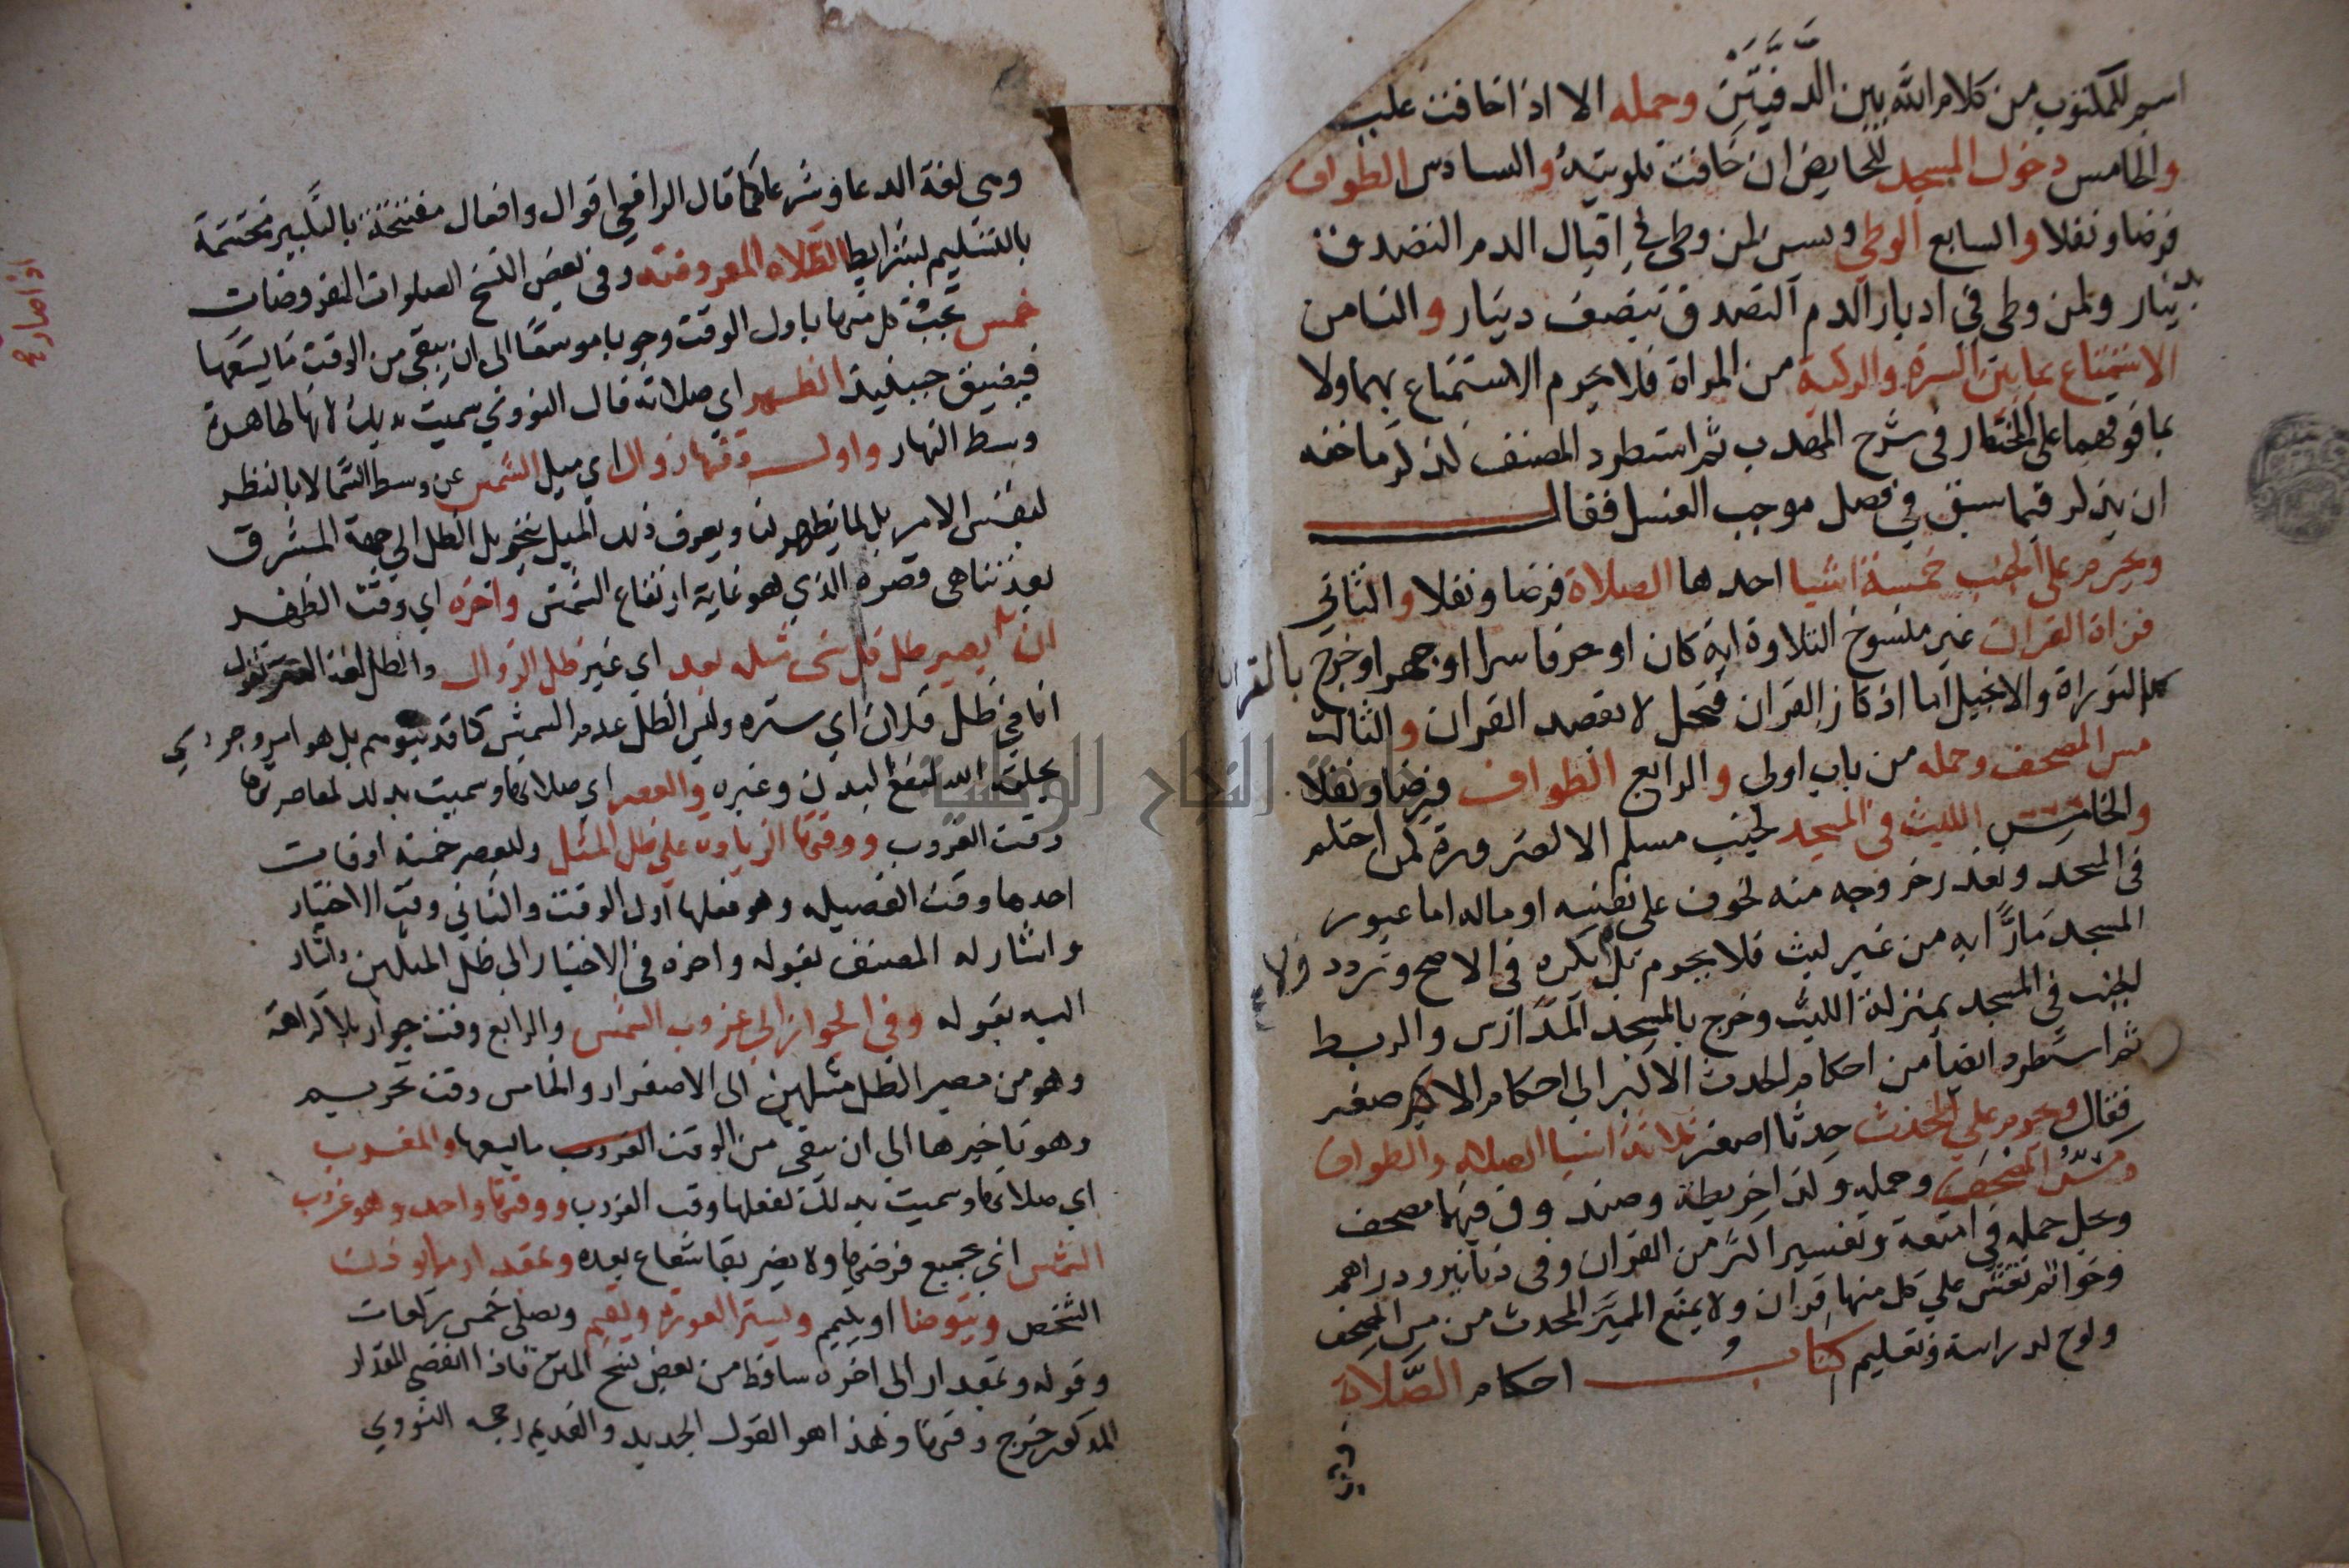 اسم للمكتوب من كلام الله بين الدفتين وحمله الا اذا خافت عليه
والخامس دخول المسجد للحايض ان خافت تلويثه والسادس الطواف
فرضا ونفلا والسابع الوطي ويسن لمن وطي في اقبال الدم التصدق
بدينار ولمن وطي في ادبار الدم التصدق بنصف دينار والثامن
الاستمتاع بما بين السرة والركبة من المراة فلا يحرم الاستمتاع بهما ولا
بما فوقهما على المختار في شرح المهذب ثم استطرد المصنف لذكر ما حقه
ان يذكر فيما سبق في فصل موجب الغسل فقال
ويحرم على الجنب خمسة اشيا احدها الصلاة فرضا ونفلا والثاني
قراة القران غير منسوخ التلاوة اية كان او حرفا سرا او جهرا وخرج بالقران
التوراة والانجيل اما اذكار القران فتحل لا بقصد القران والثالث
مس المصحف وحمله من باب اولى والرابع الطواف فرضا ونفلا
والخامس اللبث في المسجد لجنب مسلم الا لضرورة لمن احتلم
في المسجد وتعذر خروجه منه لخوف على نفسه او ماله اما عبور
المسجد مارا به من غير لبث فلا يحرم بل يكره في الاصح وتردد
الجنب في المسجد بمنزلة اللبث وخرج بالمسجد المدارس والربط
ثم استطرد ايضا من احكام الحدث الاكبر الى احكام الاصغر
فقال ويحرم على المحدث حدثا اصغر ثلاثة اشيا الصلاة والطواف
ومس المصحف وحمله وكذا خريطة وصندوق فيهما مصحف
ويحل حمله في امتعة وتفسير اكثر من القران وفي دنانير ودراهم
وخواتم نقش على كل منها قران ولا يمنع المميز المحدث من مس المصحف
ولوح لدراسة وتعليم كتاب احكام الصلاة
وهي
وهي لغة الدعا وشرعا كما قال الرافعي اقوال وافعال مفتتحة بالتكبير مختتمة
بالتسليم بشرايط الصلاة المفروضة وفي بعض النسخ الصلوات المفروضات
خمس يجب كل منها باول الوقت وجوبا موسعا الى ان يبقى من الوقت ما يسعها
فيضيق حينيذ الظهر اي صلاته قال النووي سميت بذلك لانها ظاهرة
وسط النهار واول وقتها زوال اي ميل الشمس عن وسط السما لا بالنظر
لنفس الامر بل لما يظهر لنا ويعرف ذلك الميل بتحويل الظل الى جهة المشرق
بعد تناهي قصره الذي هو غاية ارتفاع الشمس واخره اي وقت الظهر
اذا يصير ظل كل شي مثله بعد اي غير ظل الزوال والظل لغة الستر تقول
انا في ظل فلان اي ستره وليس الظل عدم الشمس كما قد يتوهم بل هو امر وجودي
يخلقه الله لنفع البدن وغيره والعصر اي صلاتها وسميت بذلك لمعاصرتها
وقت الغروب ووقتها الزيادة على ظل المثل وللعصر خمسة اوقات
احدها وقت الفضيلة وهو فعلها اول الوقت والثاني وقت الاختيار
واشار له المصنف بقوله واخره في الاختيار الى ظل المثلين واشار
اليه بقوله وفي الجواز الى غروب الشمس والرابع وقت جواز بلا كراهة
وهو من مصير الظل مثلين الى الاصفرار والخامس وقت تحريم
وهو تاخيرها الى ان يبقى من الوقت الغروب ما يسعها والمغرب
اي صلاتها وسميت بذلك لفعلها وقت الغروب ووقتها واحد وهو غروب
الشمس اي بجميع قرصها ولا يضر بقا شعاع بعده وبمقدار ما يوذن
الشخص ويتوضا او يتيمم ويستر العورة ويقيم ويصلي خمس ركعات
وقوله وبمقدار الى اخره ساقط من بعض نسخ المتن فاذا انقضى المقدار
المذكور خرج وقتها وهذا هو القول الجديد والقديم رجحه النووي
اذا صار ع
جامعة النجاح الوطنية